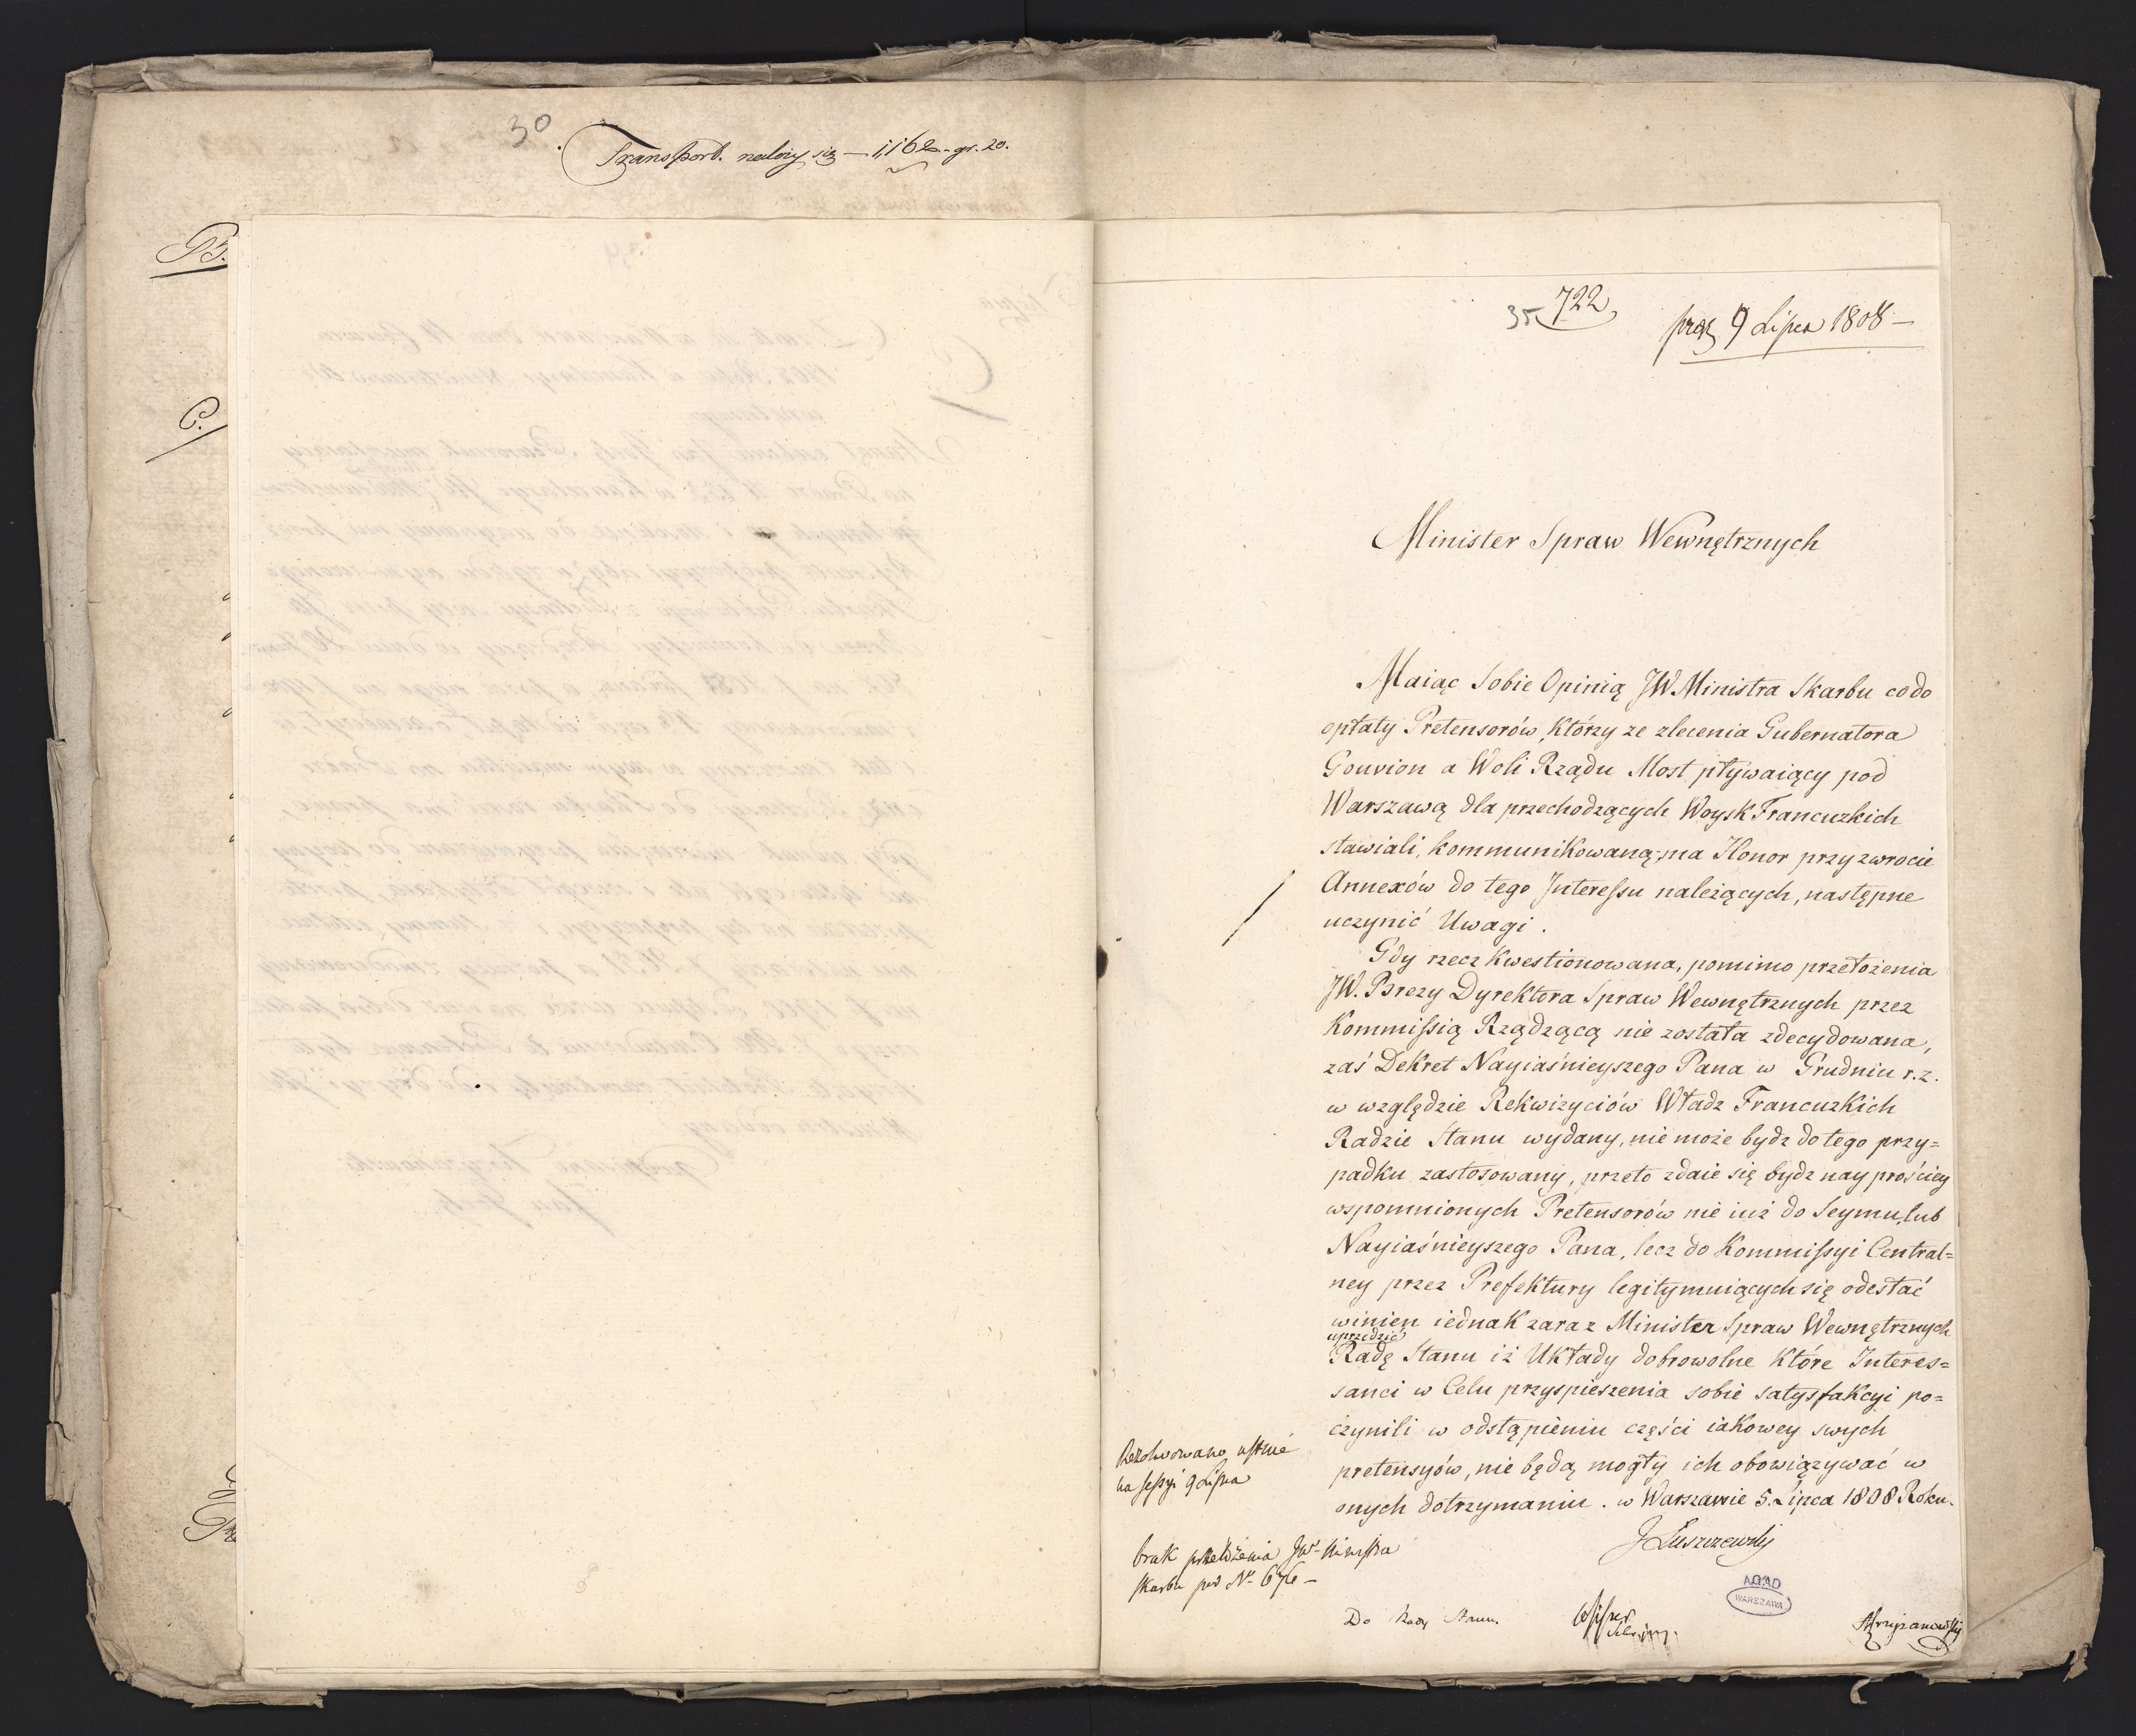 30
Transport. należy się — 1,162 - gr. 20.
B.
C.
35 722
prez 9 Lipca 1808 —
Minister Spraw Wewnętrznych
Maiąc Sobie Opinią JW Ministra Skarbu co do
opłaty Pretensorów, Którzy ze zlecenia Gubernatora
Gouvion a Woli Rządu Most pływaiący pod
Warszawą dla przechodzących Woysk Francuzkich
stawiali, kommunikowaną, ma Honor przy zwrocie
Annexów do tego Interessu należących, następne
uczynić Uwagi.
Gdy rzecz Kwestionowana, pomimo przełożenia
JW. Brezy Dyrektora Spraw Wewnętrznych przez
Kommissią Rządzącą nie została zdecydowana,
zaś Dekret Nayiaśnieyszego Pana w Grudniu r.z.
w względzie Rekwizyciów Władz Francuzkich
Radzie Stanu wydany, nie może bydz do tego przy=
padku zastosowany, przeto zdaie się bydz nay prościey
wspomnionych Pretensorów nie iuż do Seymu, lub
Nayiaśnieyszego Pana, lecz do Kommissyi Central=
ney przez Prefektury legitymuiących się odesłać
winien iednak zaraz Minister Spraw Wewnętrznych
uprzedzić
Radę Stanu iż Układy dobrowolne Które Interes=
sanci w Celu przyspieszenia sobie satysfakcyi po=
czynili w odstąpieniu części iakowey swych
pretensyów, nie będą mogły ich obowiązywać w
onych dotrzymaniu. w Warszawie 5. Lipca 1808 Roku.
J Łuszczewski
Rezolwowano ustnie
na sessyi 9 Lipca
brak przełożenia JW. Ministra
Skarbu pod No 676 —
Do Rady Stanu.
AGAD
WARSZAWA